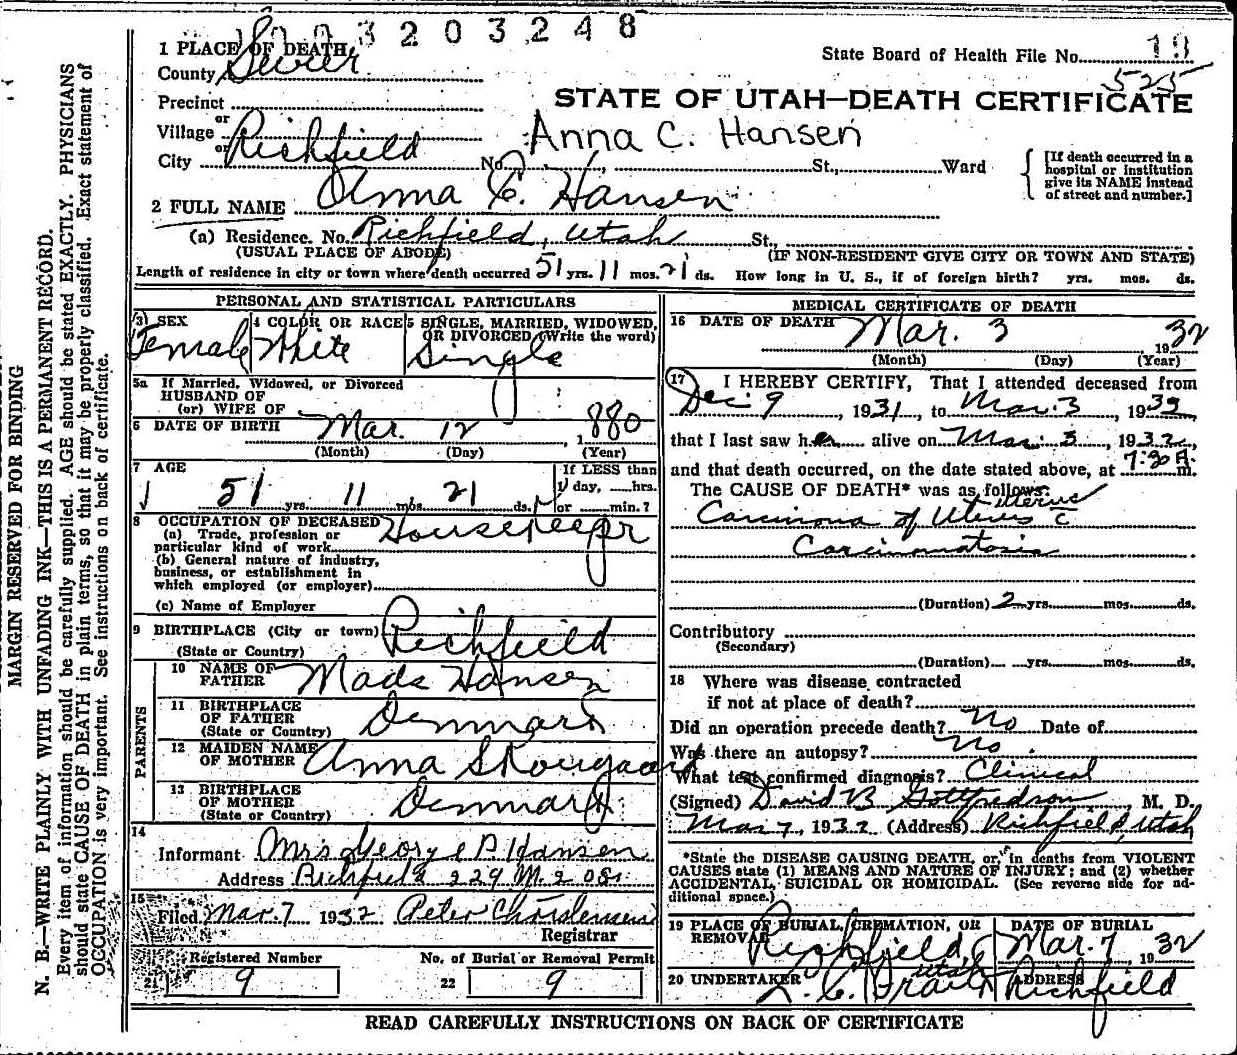 3203248
1 PLACE OF DEATH
County Sevier
State Board of Health File No. 19
525
Precinct
STATE OF UTAH—DEATH CERTIFICATE
or
Village
Anna C. Hansen
or
City Richfield No. St., Ward
[If death occurred in a hospital or institution give its NAME instead of street and number.]
2 FULL NAME Anna C. Hansen
(a) Residence. No. Richfield, Utah St.,
(USUAL PLACE OF ABODE) (IF NON-RESIDENT GIVE CITY OR TOWN AND STATE)
Length of residence in city or town where death occurred 51 yrs. 11 mos. 21 ds. How long in U. S., if of foreign birth? yrs. mos. ds.
PERSONAL AND STATISTICAL PARTICULARS
3 SEX Female
4 COLOR OR RACE White
5 SINGLE, MARRIED, WIDOWED, OR DIVORCED (Write the word) Single
5a If Married, Widowed, or Divorced
HUSBAND OF
(or) WIFE OF
6 DATE OF BIRTH Mar. 12, 1880
(Month) (Day) (Year)
7 AGE
51 yrs. 11 mos. 21 ds.
If LESS than
1 day, hrs.
or min.?
8 OCCUPATION OF DECEASED Housekeeper
(a) Trade, profession or
particular kind of work
(b) General nature of industry,
business, or establishment in
which employed (or employer)
(c) Name of Employer
9 BIRTHPLACE (City or town) Richfield
(State or Country)
PARENTS
10 NAME OF FATHER Mads Hansen
11 BIRTHPLACE OF FATHER Denmark
(State or Country)
12 MAIDEN NAME OF MOTHER Anna Skougaard
13 BIRTHPLACE OF MOTHER Denmark
(State or Country)
14
Informant Mrs George P. Hansen
Address Richfield 229 M. 2
15
Filed Mar. 7 1932 Peter Christensen
Registrar
Registered Number
21 9
No. of Burial or Removal Permit
22 9
MEDICAL CERTIFICATE OF DEATH
16 DATE OF DEATH Mar. 3 1932
(Month) (Day) (Year)
17 I HEREBY CERTIFY, That I attended deceased from
Dec 9, 1931, to Mar. 3, 1932,
that I last saw her alive on Mar. 3, 1932,
and that death occurred, on the date stated above, at 7:30 A. m.
The CAUSE OF DEATH* was as follows:
uterus
Carcinoma of Uterus c̄
Carcinomatosis
(Duration) 2 yrs. mos. ds.
Contributory
(Secondary)
(Duration) yrs. mos. ds.
18 Where was disease contracted
if not at place of death?
Did an operation precede death? No Date of
Was there an autopsy? No.
What test confirmed diagnosis? Clinical
(Signed) David B Gottfredson, M. D.
Mar 7, 1932 (Address) Richfield, Utah
*State the DISEASE CAUSING DEATH, or, in deaths from VIOLENT
CAUSES state (1) MEANS AND NATURE OF INJURY; and (2) whether
ACCIDENTAL, SUICIDAL OR HOMICIDAL. (See reverse side for ad-
ditional space.)
19 PLACE OF BURIAL, CREMATION, OR REMOVAL Richfield, Utah
DATE OF BURIAL Mar. 7, 1932
20 UNDERTAKER
ADDRESS Richfield
READ CAREFULLY INSTRUCTIONS ON BACK OF CERTIFICATE
MARGIN RESERVED FOR BINDING
N. B.—WRITE PLAINLY WITH UNFADING INK—THIS IS A PERMANENT RECORD.
Every item of information should be carefully supplied. AGE should be stated EXACTLY. PHYSICIANS
should state CAUSE OF DEATH in plain terms, so that it may be properly classified. Exact statement of
OCCUPATION is very important. See instructions on back of certificate.